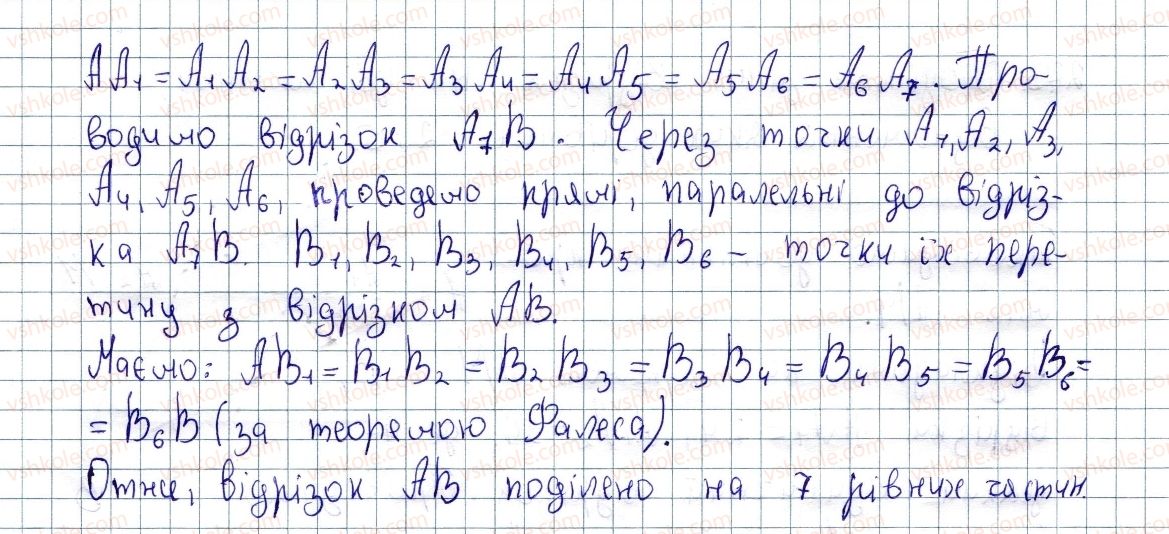 AA₁ = A₁A₂ = A₂A₃ = A₃A₄ = A₄A₅ = A₅A₆ = A₆A₇. Про-
водимо відрізок A₇B. Через точки A₁, A₂, A₃,
A₄, A₅, A₆, проведемо прямі, паралельні до відріз-
ка A₇B. B₁, B₂, B₃, B₄, B₅, B₆ – точки їх пере-
тину з відрізком AB.
Маємо: AB₁ = B₁B₂ = B₂B₃ = B₃B₄ = B₄B₅ = B₅B₆ =
= B₆B (за теоремою Фалеса).
Отже, відрізок AB поділено на 7 рівних частин.